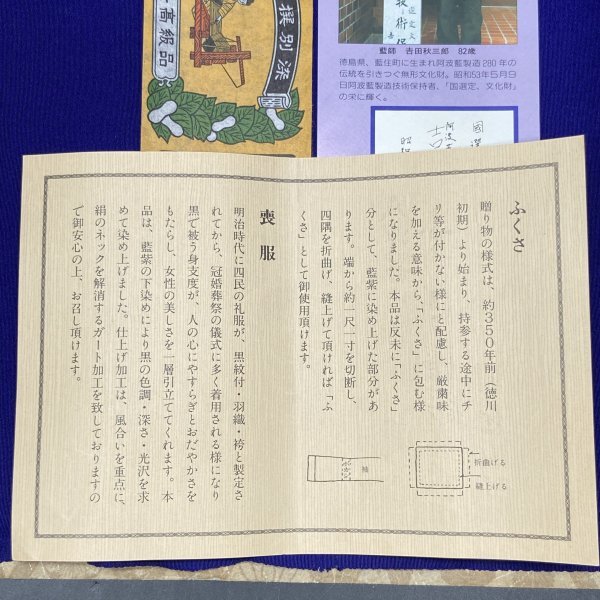 撰別漾
高級品
技術保
藍師 吉田秋三郎 82歳
徳島県、藍住町に生まれ阿波藍製造280年の
伝統を引きつぐ無形文化財。昭和53年5月9
日阿波藍製造技術保持者、「国選定、文化財」
の栄に輝く。
国選
阿波
昭
ふくさ
贈り物の様式は、約350年前（徳川
初期）より始まり、持参する途中にチ
リ等が付かない様にと配慮し、厳粛味
を加える意味から、「ふくさ」に包む様
になりました。本品は反末に「ふくさ」
分として、藍紫に染め上げた部分があ
ります。端から約一尺一寸を切断し、
四隅を折曲げ、縫上げて頂ければ「ふ
くさ」として御使用頂けます。
折曲げる
縫上げる
袖
喪服
明治時代に四民の礼服が、黒紋付・羽織・袴と製定さ
れてから、冠婚葬祭の儀式に多く着用される様になり
黒で被う身支度が、人の心にやすらぎとおだやかさを
もたらし、女性の美しさを一層引立ててくれます。本
品は、藍紫の下染めにより黒の色調・深さ・光沢を求
めて染め上げました。仕上げ加工は、風合いを重点に、
絹のネックを解消するガート加工を致しておりますの
で御安心の上、お召し頂けます。